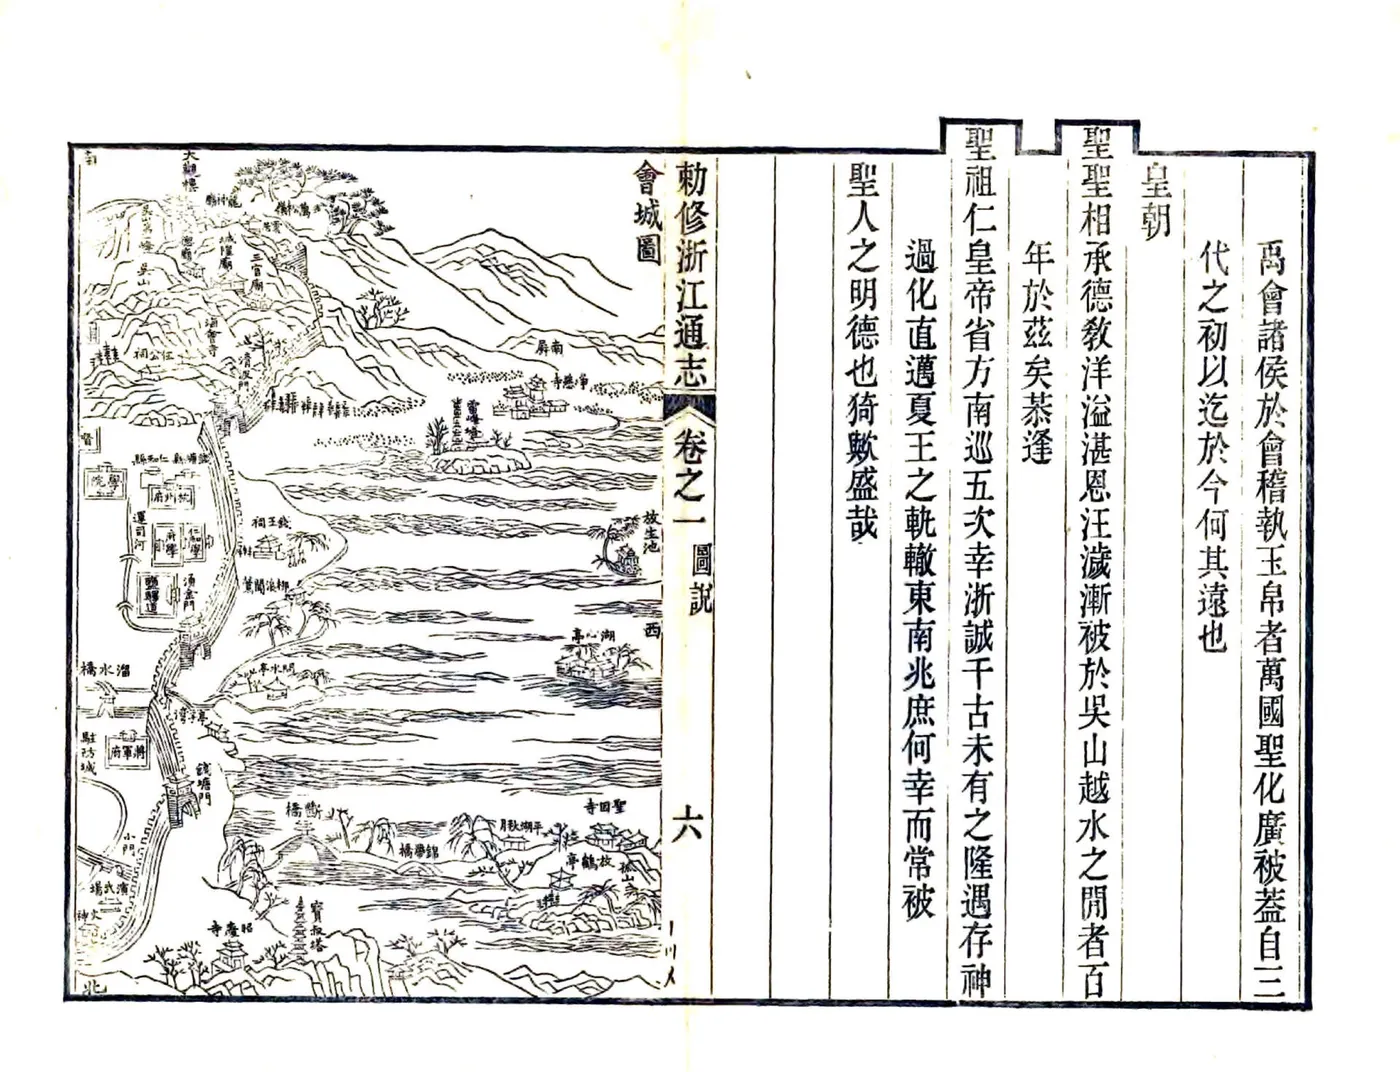 禹會諸侯於會稽執玉帛者萬國聖化廣被葢自三
代之初以迄於今何其遠也
皇朝
聖聖相承德敎洋溢湛恩汪濊漸被於吳山越水之閒者百
年於茲矣恭逢
聖祖仁皇帝省方南巡五次幸浙誠千古未有之隆遇存神
過化直邁夏王之軌轍東南兆庶何幸而常被
聖人之明德也猗歟盛哉
勅修浙江通志
卷之一
圖說
六
會城圖
放生池
西
南屏
淨慈寺
雷峰塔
湖心亭
聖因寺
平湖秋月
放鶴亭
孤山
錦帶橋
斷橋
寶叔塔
昭慶寺
錢王祠
柳浪聞鶯
問水亭
錢塘門
湧金門
清波門
海會寺
三官廟
城隍廟
大觀樓
吳山
伍公祠
南
學院
杭州府
運司河
府學
仁和學
鹽驛道
溜水橋
將軍府
駐防城
小門
演武場
火神
北